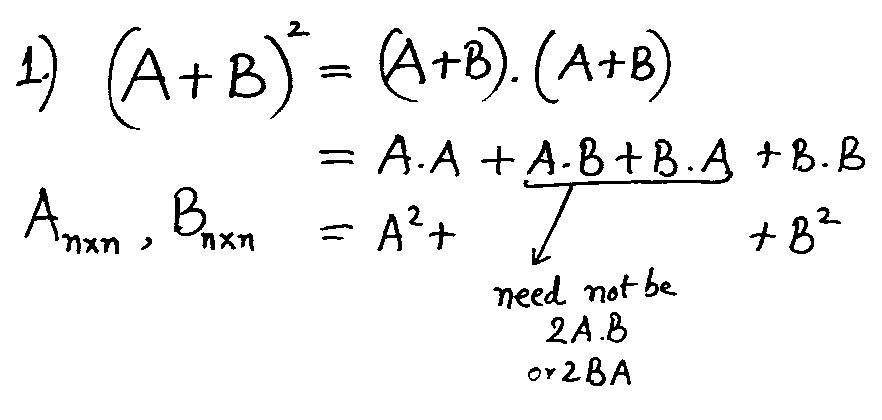 1) (A+B)² = (A+B).(A+B)
= A.A + A.B + B.A + B.B
Aₙₓₙ , Bₙₓₙ = A² + + B²
need not be
2A.B
or 2BA